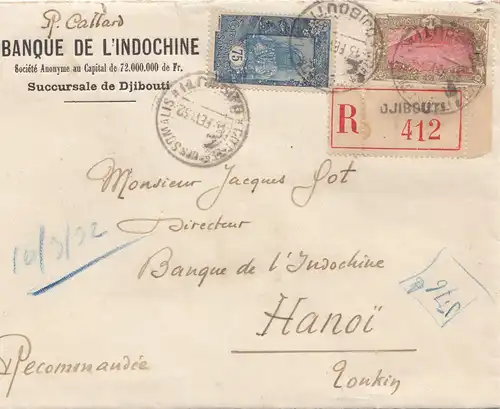 P. Cattard
BANQUE DE L'INDOCHINE
Société Anonyme au Capital de 72.000.000 de Fr.
Succursale de Djibouti
75
DJIBOUTI
R 412
Monsieur Jacques Got
Directeur
Banque de l'Indochine
Hanoï
Tonkin
Recommandée
10/3/32